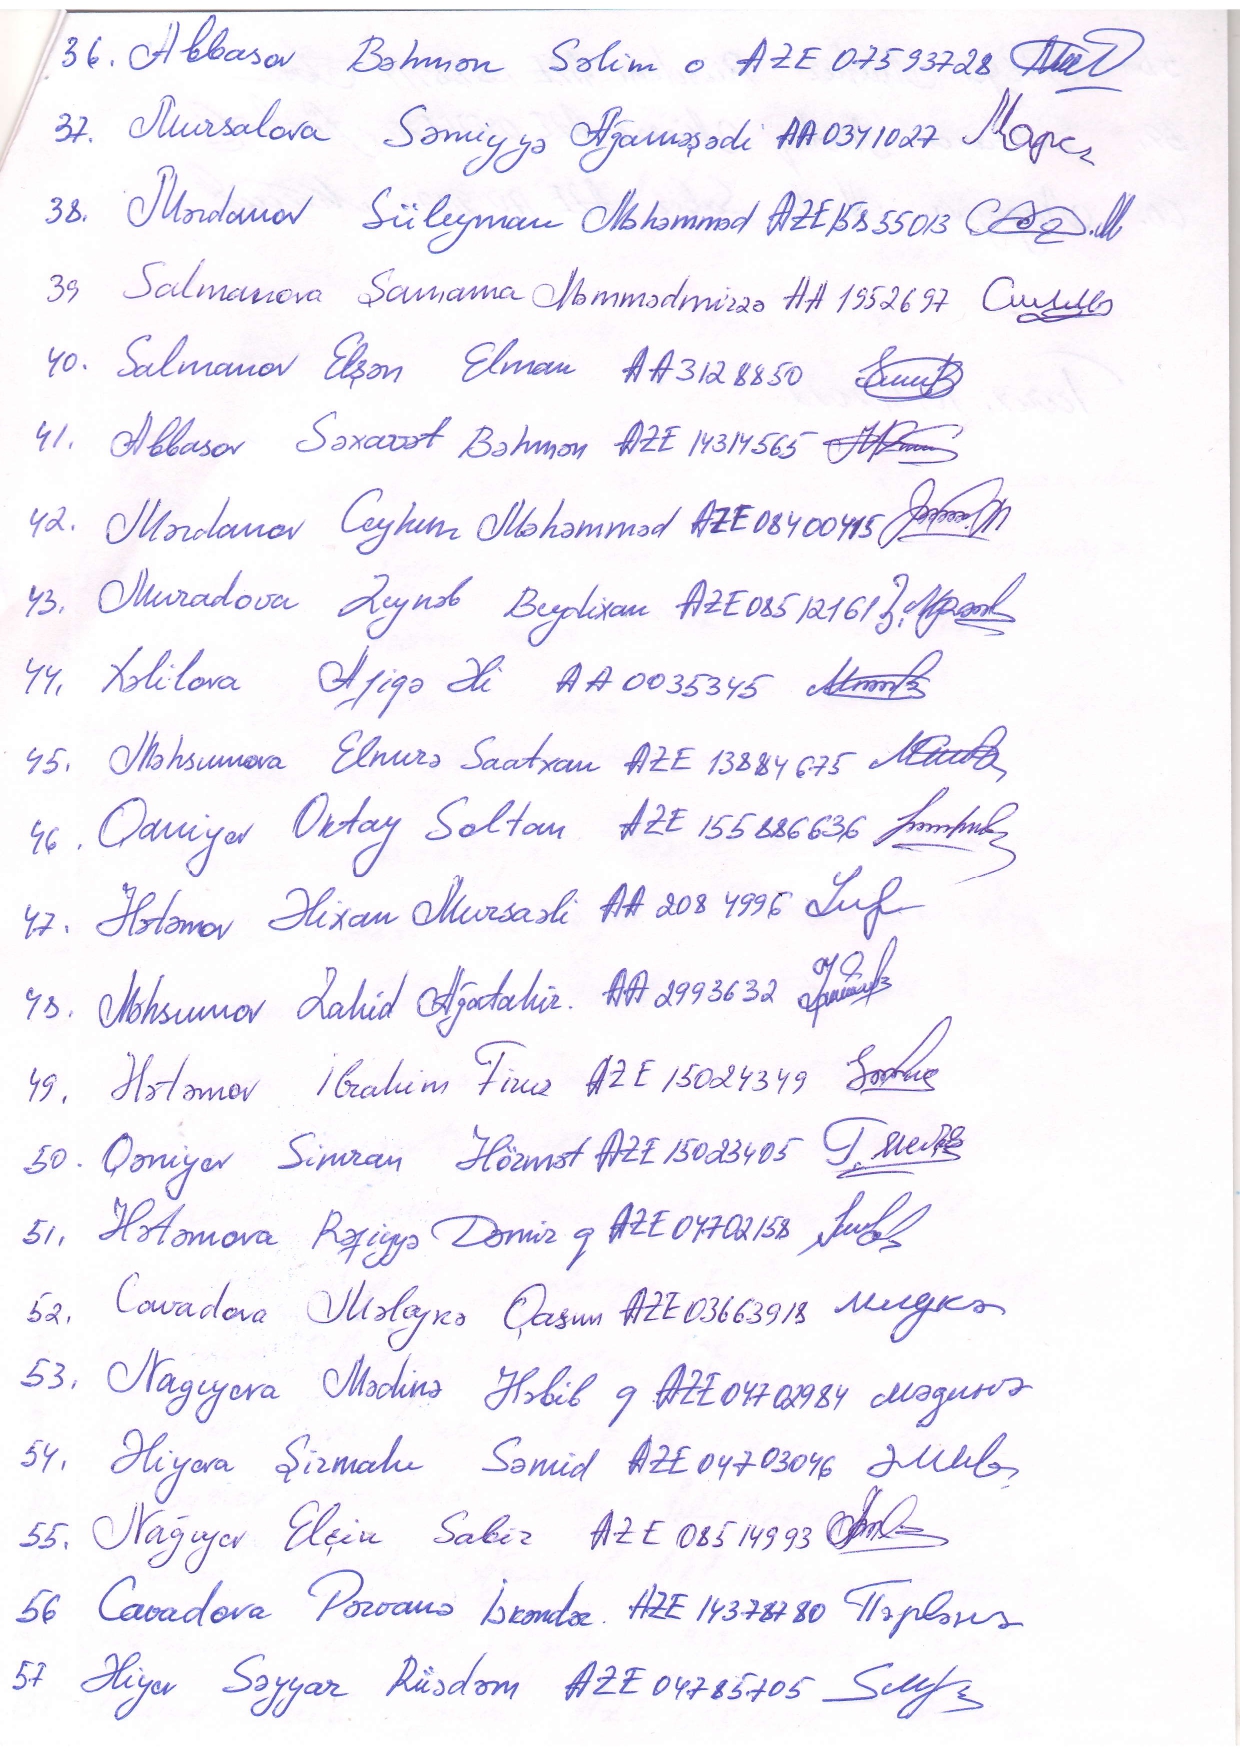 36. Abbasov Bəhmən Səlim o AZE 07593728
37. Mursalova Səmiyyə Ağaməşədi AA 0341027 Марс
38. Mərdanov Süleyman Məhəmməd AZE 15855013
39 Salmanova Şamama Məmmədmirzə AA 1952697
40. Salmanov Elşən Elman AA 3128850
41. Abbasov Səxavət Bəhmən AZE 14314565
42. Mərdanov Ceyhun Məhəmməd AZE 08400415
43. Muradova Zeynəb Beydixan AZE 08512161
44. Xəlilova Afiqə Əli AA 0035345
45. Məhsumova Elnurə Saatxan AZE 13884675
46. Qəniyev Oktay Soltan AZE 155886636
47. Hətəmov Əlixan Mursəli AA 2084996
48. Məhsumov Zahid Ağatahir. AA 2993632
49. Hətəmov İbrahim Firuz AZE 15024349
50. Qəniyev Simran Hörmət AZE 15023405
51. Hətəmova Rəfiyyə Dəmir q AZE 04702158
52. Cavadova Mələykə Qasım AZE 03663918
53. Nagıyeva Mədinə Həbib q AZE 04702984 мәдинә
54. Əliyeva Şirmahı Səmid AZE 04703046
55. Nağıyev Elçin Sabir AZE 08514993
56 Cavadova Pərvanə İskəndər. AZE 14378780 Пәрванә
57 Əliyev Səyyar Rüsdəm AZE 04785705